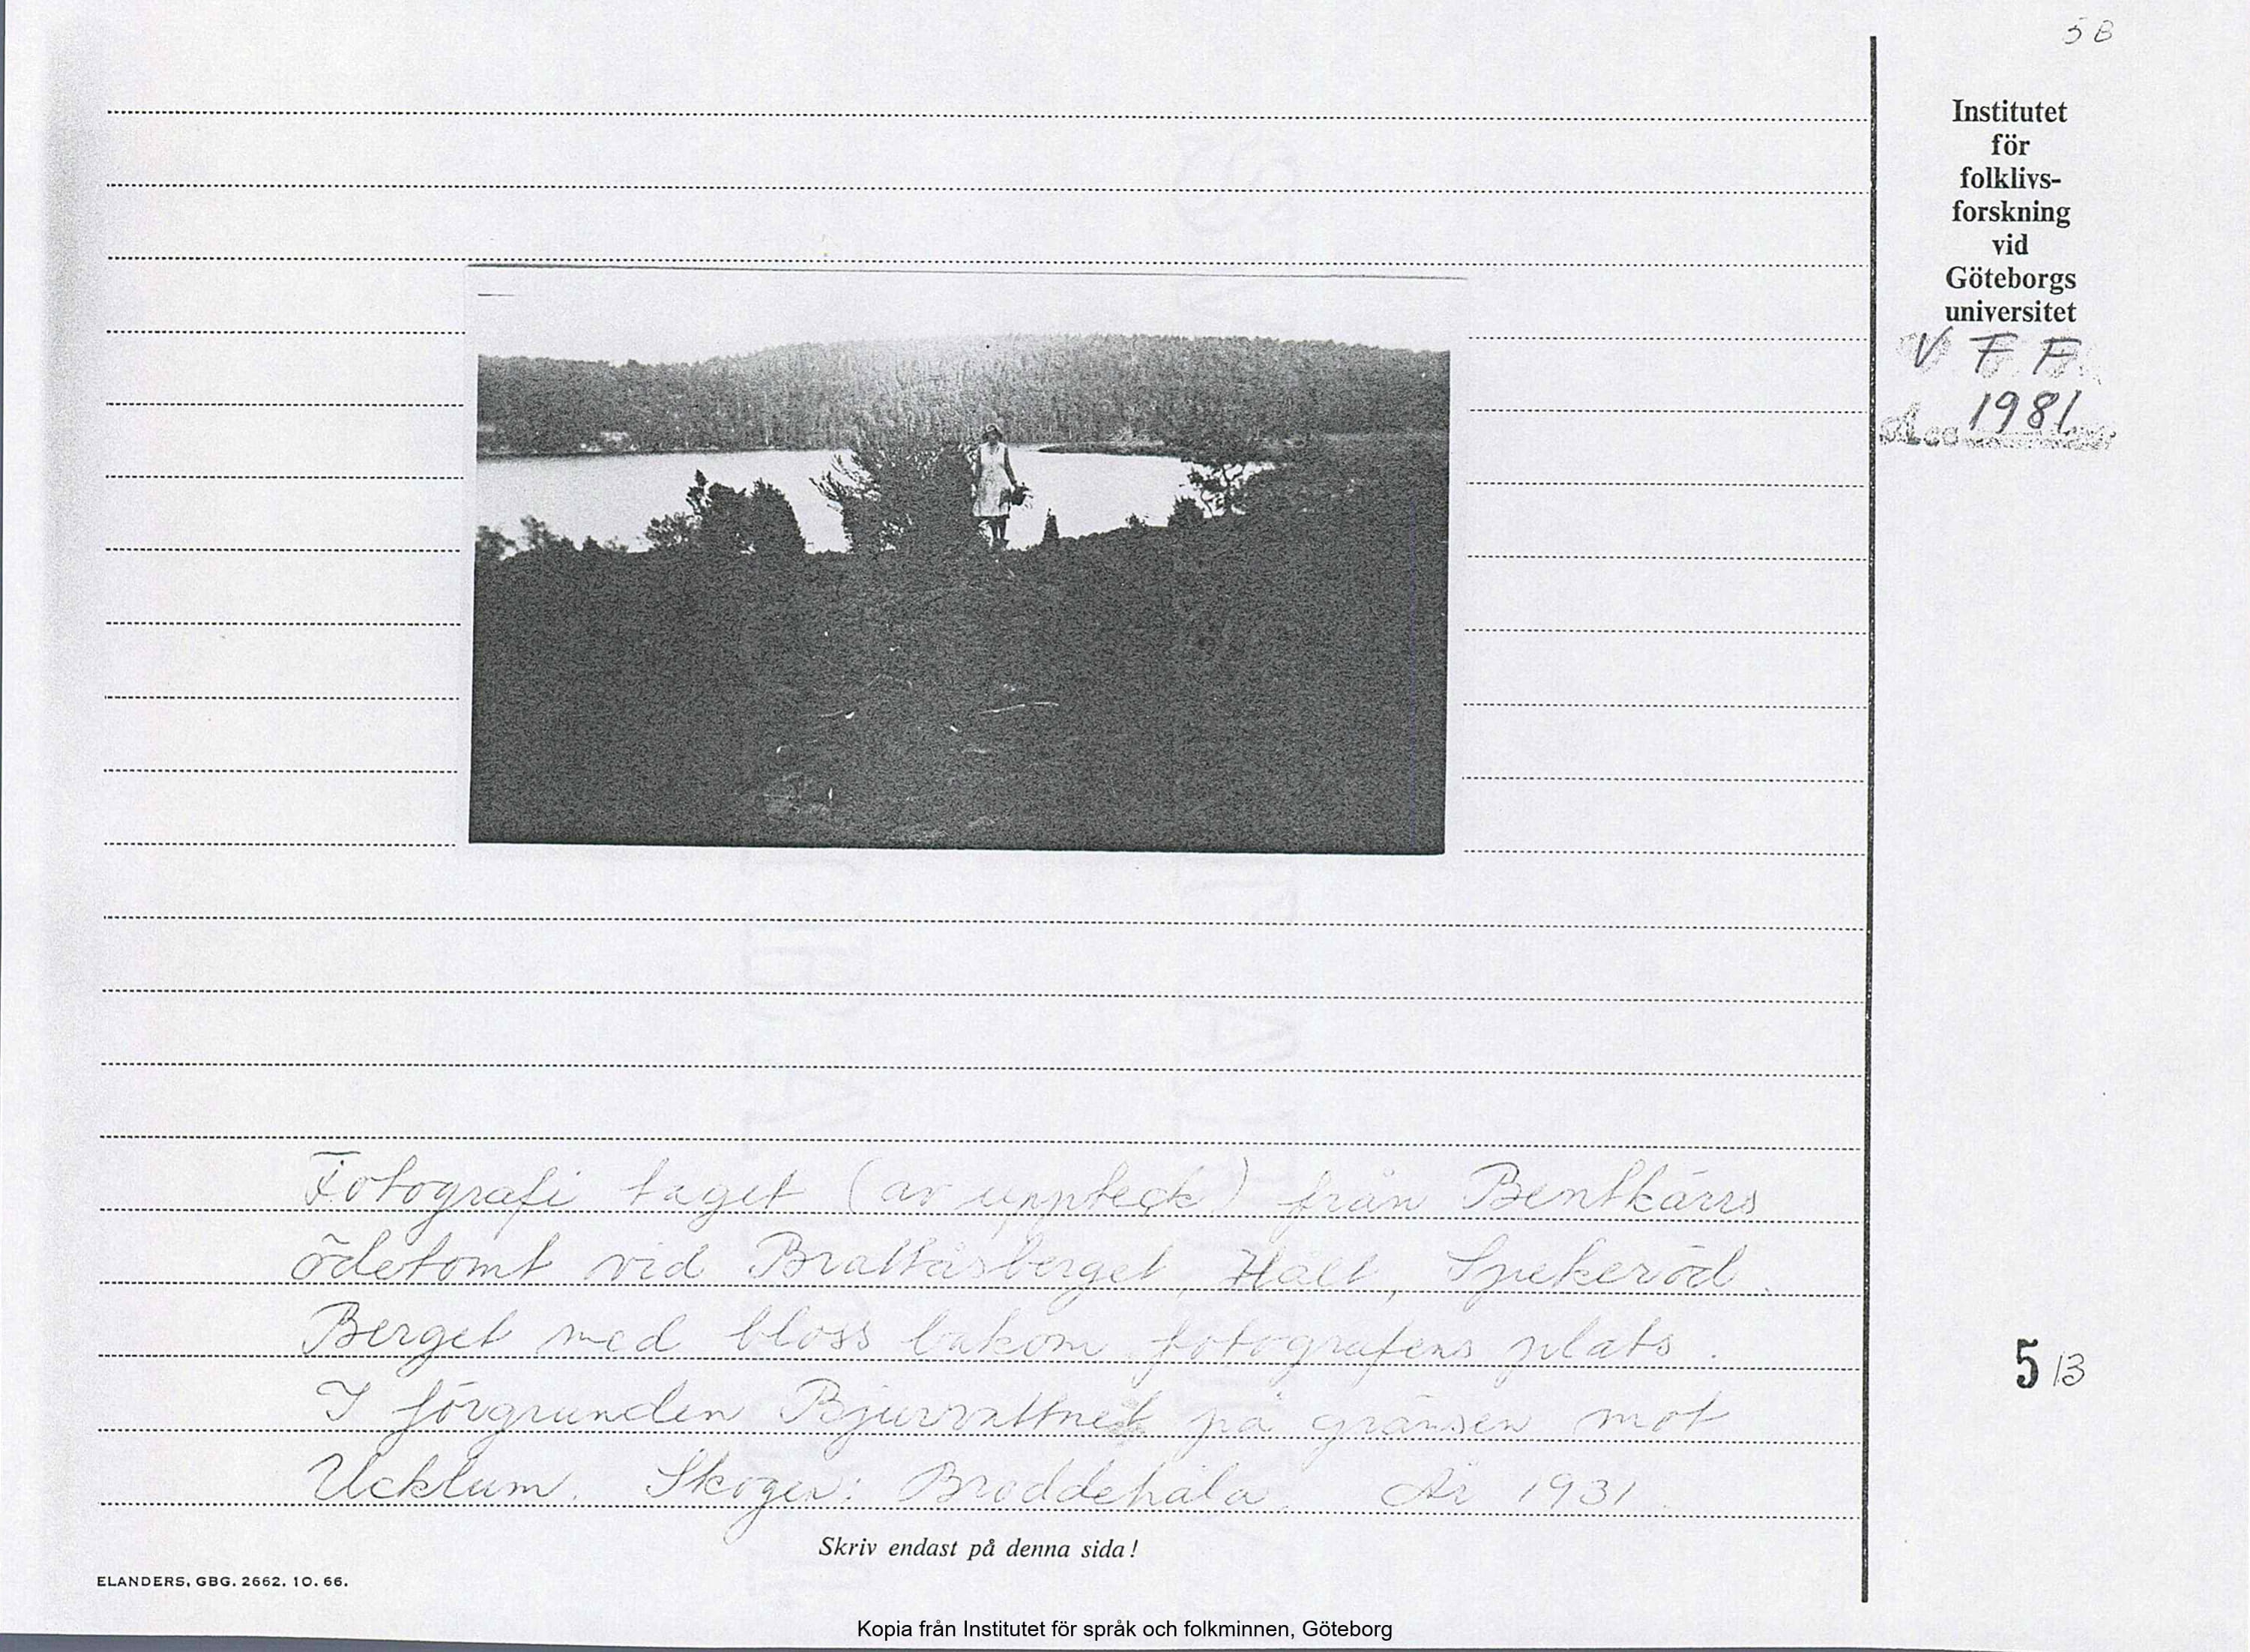 5 B
Institutet
för
folklivs-
forskning
vid
Göteborgs
universitet
V F F
1981
Fotografi taget (av uppteck) från Bentkärrs
ödetomt vid Brattåsberget, Hält, Spekeröd.
Berget med bloss bakom fotografens plats.
I förgrunden Bjurvattnet på gränsen mot
Ucklum. Skogen: Broddehala. År 1931.
5 B
Skriv endast på denna sida!
ELANDERS, GBG. 2662. 10. 66.
Kopia från Institutet för språk och folkminnen, Göteborg